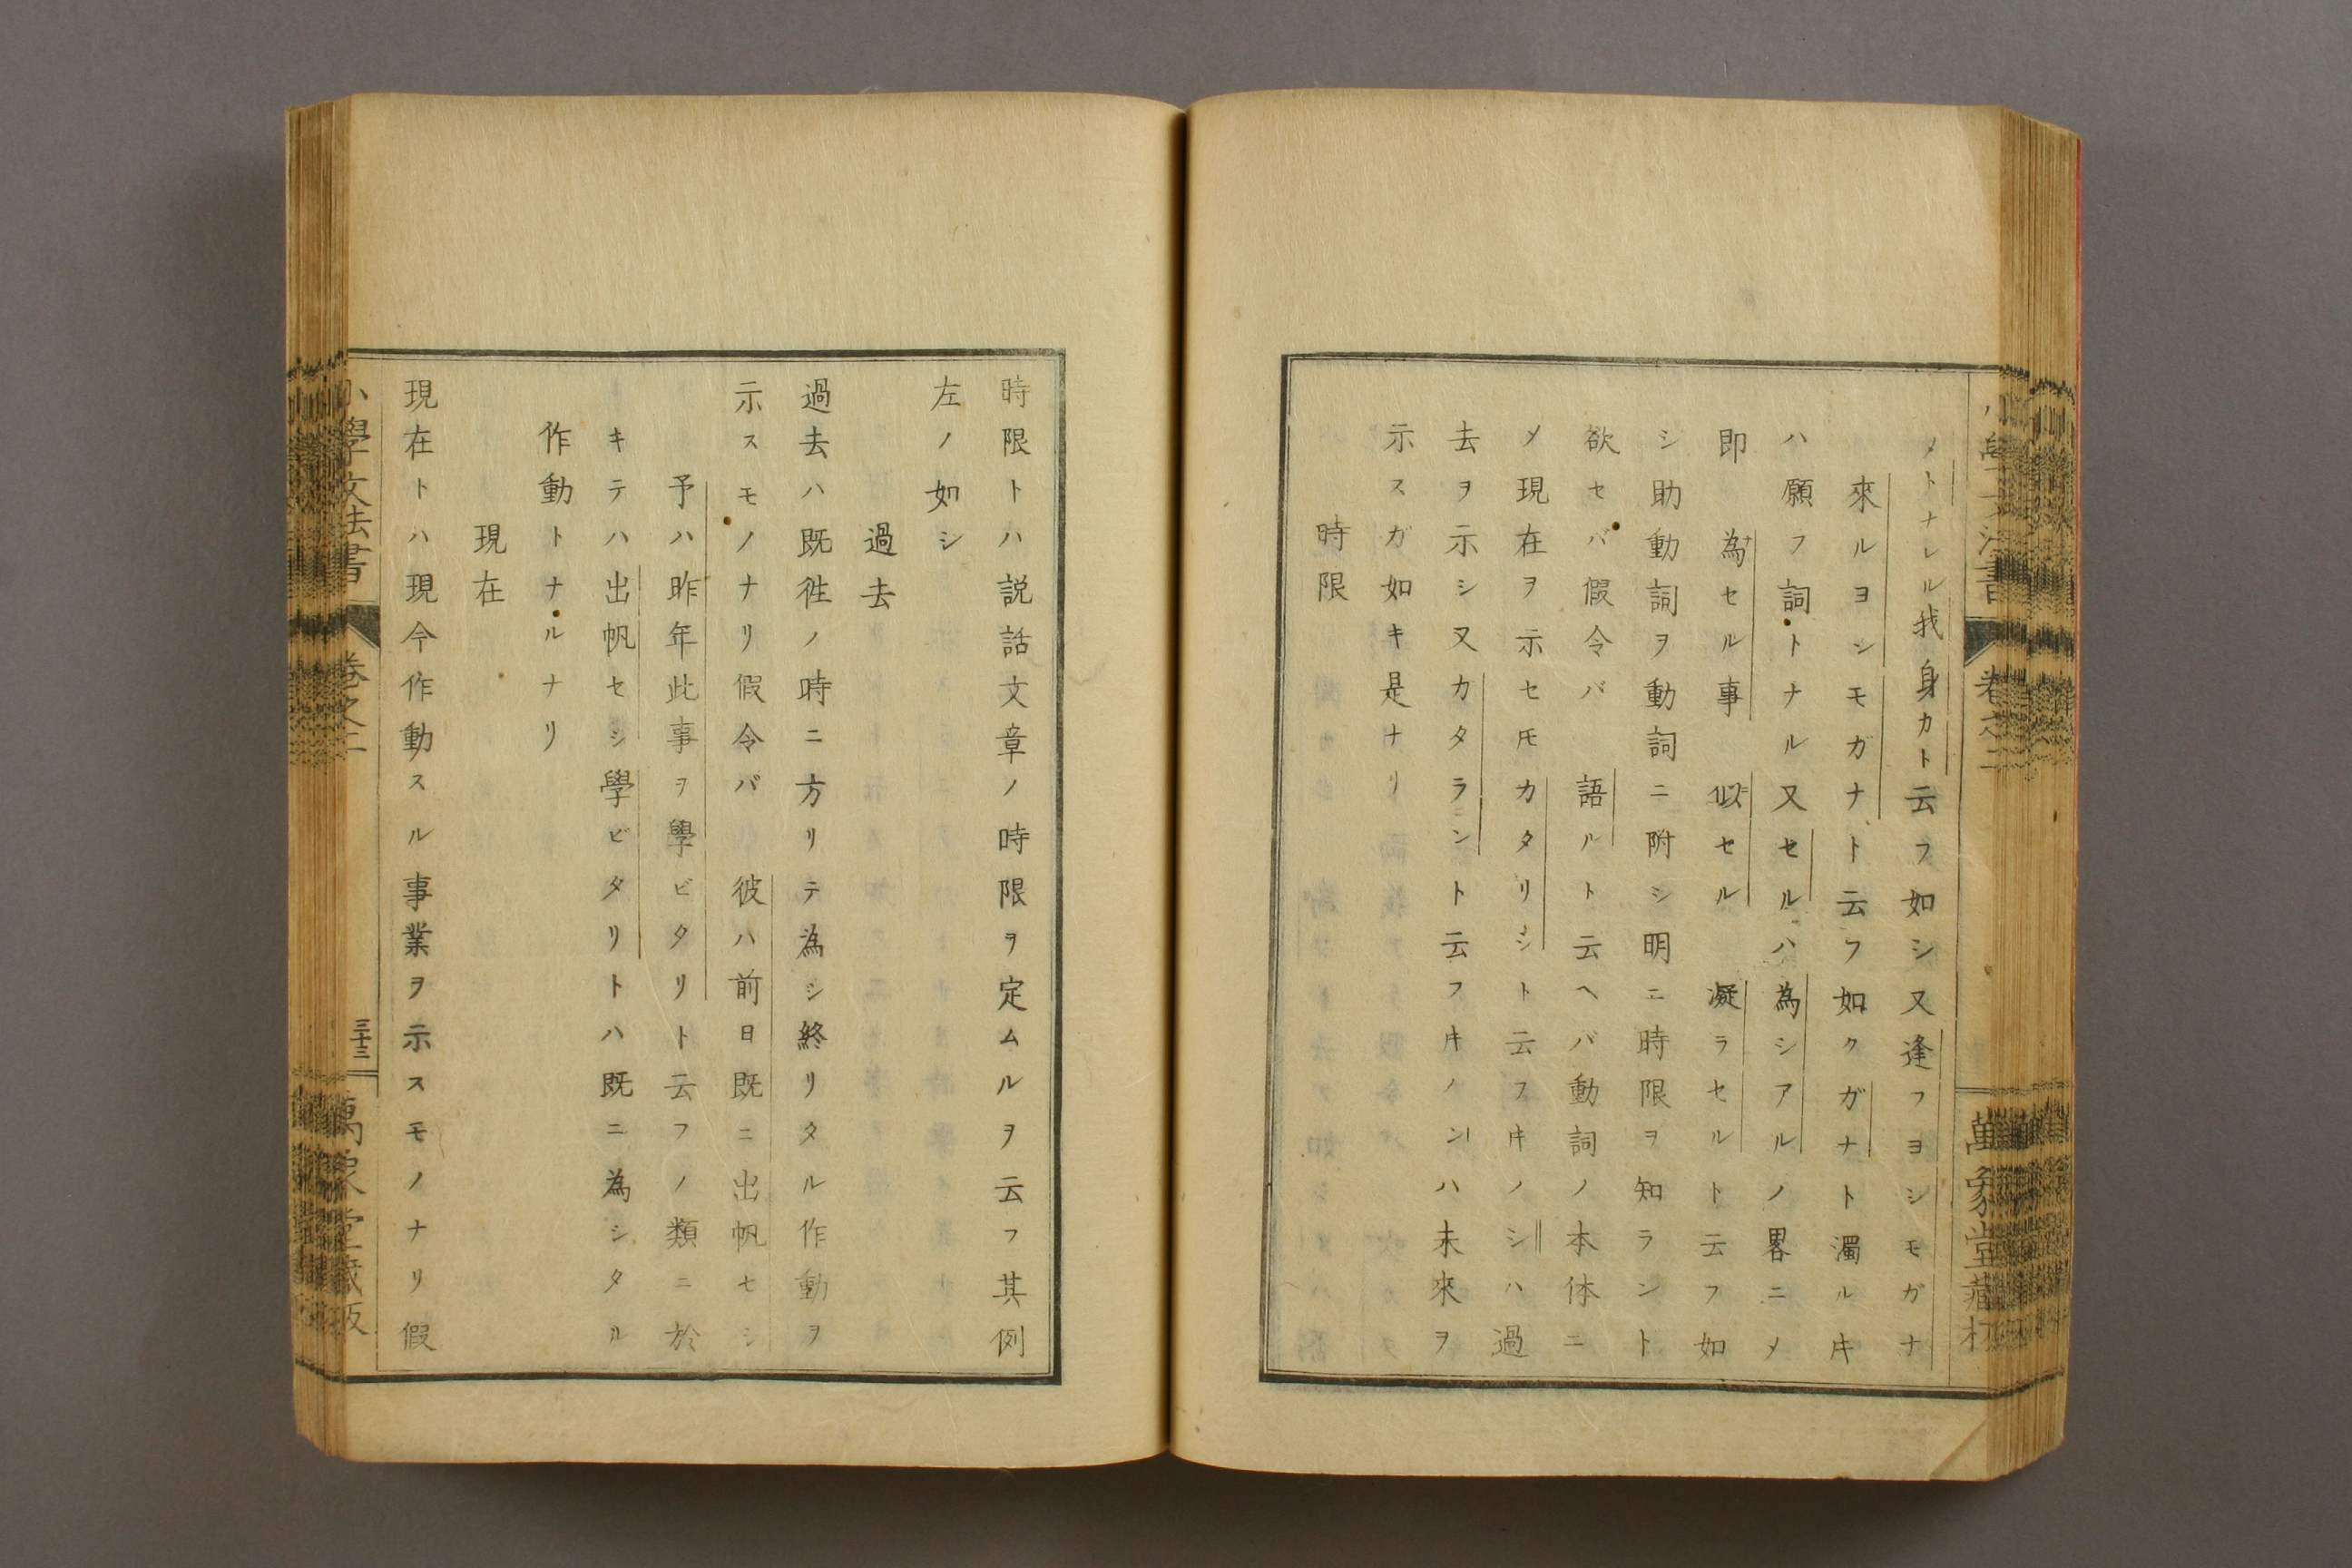 小學文法書 卷之二 萬象堂藏板
メトナレル我身カト云フ如シ又逢フヨシモガナ
來ルヨシモガナト云フ如クガナト濁ルキ
ハ願フ詞トナル又セルハ為シアルノ畧ニメ
即 為セル事 似セル 凝ラセルト云フ如
シ助動詞ヲ動詞ニ附シ明ニ時限ヲ知ラント
欲セバ假令バ 語ルト云ヘバ動詞ノ本体ニ
メ現在ヲ示セ𪜈カタリシト云フキノシハ過
去ヲ示シ又カタラント云フキノンハ未來ヲ
示スガ如キ是ナリ
時限
時限トハ説話文章ノ時限ヲ定ムルヲ云フ其例
左ノ如シ
過去
過去ハ既徃ノ時ニ方リテ為シ終リタル作動ヲ
示スモノナリ假令バ 彼ハ前日既ニ出帆セシ
予ハ昨年此事ヲ學ビタリト云フノ類ニ於
キテハ出帆セシ學ビタリトハ既ニ為シタル
作動トナルナリ
現在
現在トハ現今作動スル事業ヲ示スモノナリ假
小學文法書 卷之二 三十三 萬象堂藏板